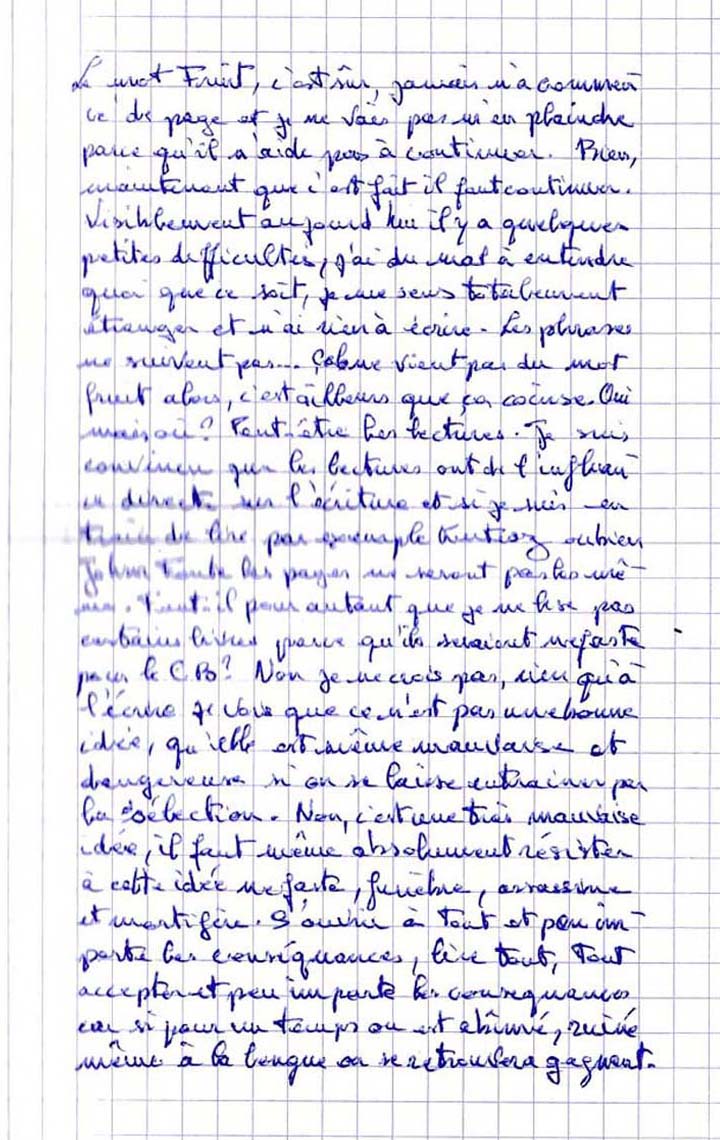 Le mot Fruit, c'est sûr, jamais n'a commen
cé de page et je ne vais pas m'en plaindre
parce qu'il n'aide pas à continuer. Bien,
maintenant que c'est fait il faut continuer.
Visiblement aujourd'hui il y a quelques
petites difficultés, j'ai du mal à entendre
quoi que ce soit, je me sens totalement
étranger et n'ai rien à écrire. Les phrases
ne suivent pas... Cela ne vient pas du mot
fruit alors, c'est ailleurs que ça coince. Oui
mais où ? Peut-être les lectures. Je suis
convaincu que les lectures ont de l'influen
ce directe sur l'écriture et si je suis en
train de lire par exemple ou bien
John les pages ne seront pas les mê-
mes. Faut-il pour autant que je ne lise pas
certains livres parce qu'ils seraient néfaste
pour le C.P.B ? Non je ne crois pas, rien qu'à
l'écrire je vois que ce n'est pas une bonne
idée, qu'elle est même mauvaise et
dangereuse si on se laisse entrainer par
la sélection. Non, c'est une très mauvaise
idée, il faut même absolument résister
à cette idée nefaste, funèbre, assassine
et mortifère. S'ouvrir à tout et peu im-
porte les conséquances, lire tout, tout
accepter et peu importe les consequances
car si pour un temps on est abîmé, ruiné
même à la longue on se retrouvera gagnant.